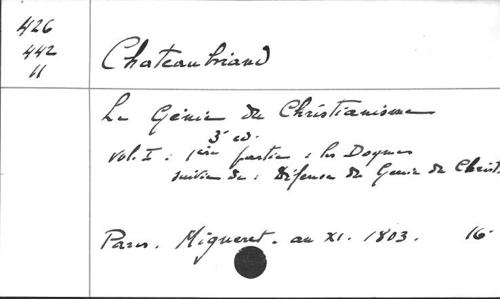 426
442
11
Chateaubriand
Le Génie du Christianisme
3e ed.
Vol. I : 1ère partie : les Dogmes
suivie de : Défense du Génie du Christ.
Paris. Migneret. an XI. 1803. 16°